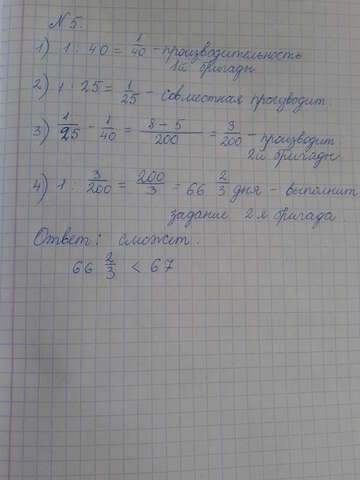 N 5.
1) 1 : 40 = 1/40 - производительность
1й бригады
2) 1 : 25 = 1/25 - совместная производит
3) 1/25 - 1/40 = 8-5/200 = 3/200 - производит
2й бригады
4) 1 : 3/200 = 200/3 = 66 2/3 дня - выполнит
задание 2 я бригада
Ответ: сможет.
66 2/3 < 67